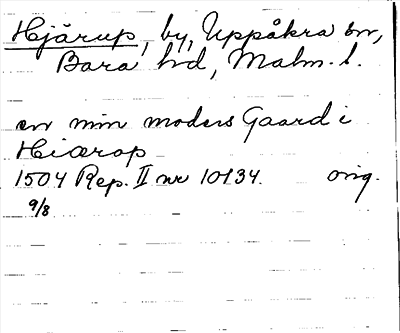 Hjärup, by, Uppåkra sn,
Bara hd, Malm. l.
en min moders Gaard i
Hiærop
1504 Rep. II nr 10134. orig.
9/8